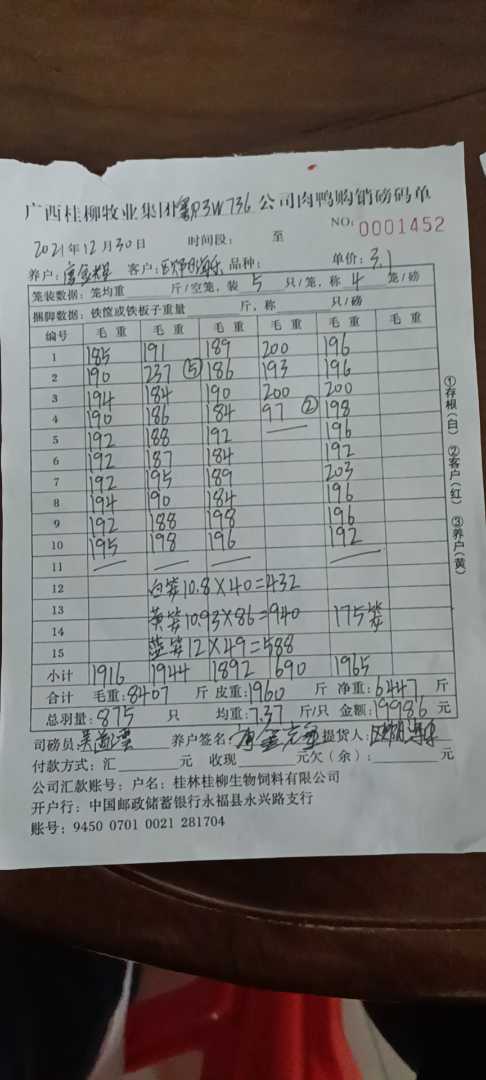 广西桂柳牧业集团粤P3W736公司肉鸭购销磅码单
NO: 0001452
2021年12月30日 时间段： 至
养户： 客户： 品种： 单价：3.1
笼装数据：笼均重 斤/空笼，装 5 只/笼，称 4 笼/磅
捆脚数据：铁筐或铁板子重量 斤，称 只/磅
编号 毛重 毛重 毛重 毛重 毛重 毛重
1 185 191 189 200 196
2 190 237 ⑤ 186 193 196
3 194 184 190 200 200
4 190 186 184 97 ② 198
5 192 188 192 196
6 192 187 184 192
7 192 195 189 203
8 194 190 184 196
9 192 188 198 196
10 195 198 196 192
11
12 白笼10.8×40=432
13 黄笼10.93×86=940 175笼
14
15 蓝笼12×49=588
小计 1916 1944 1892 690 1965
合计 毛重：8407 斤 皮重：1960 斤 净重：6447 斤
总羽量：875 只 均重：7.37 斤/只 金额：19986 元
司磅员 养户签名： 提货人：
付款方式：汇 元 收现 元欠（余）： 元
公司汇款账号：户名：桂林桂柳生物饲料有限公司
开户行：中国邮政储蓄银行永福县永兴路支行
账号：9450 0701 0021 281704
①存根（白） ②客户（红） ③养户（黄）